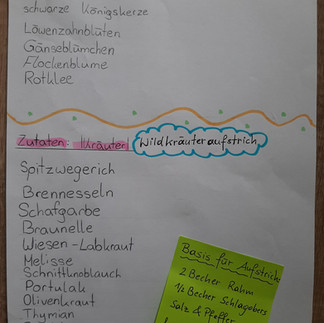 schwarze Königskerze
Löwenzahnblüten
Gänseblümchen
Flockenblume
Rotklee
Zutaten: Kräuter Wildkräuteraufstrich
Spitzwegerich
Brennesseln
Schafgarbe
Braunelle
Wiesen-Labkraut
Melisse
Schnittknoblauch
Portulak
Olivenkraut
Thymian
Basis für Aufstrich:
2 Becher Rahm
1/2 Becher Schlagobers
Salz & Pfeffer